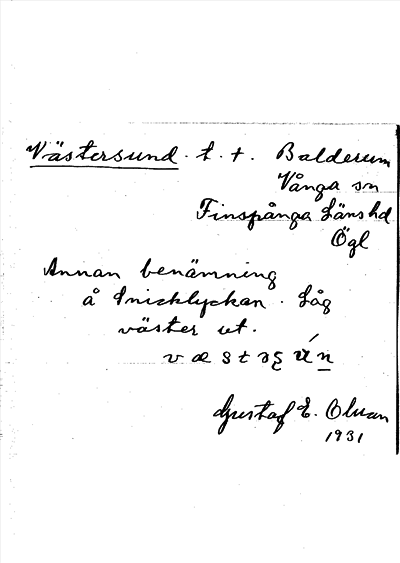 Västersund. t. t. Balderum
Vånga sn
Finspånga Läns hd
Ögl
Annan benämning
å Snicklyckan. Låg
väster ut.
Gustaf E. Olsson
1931